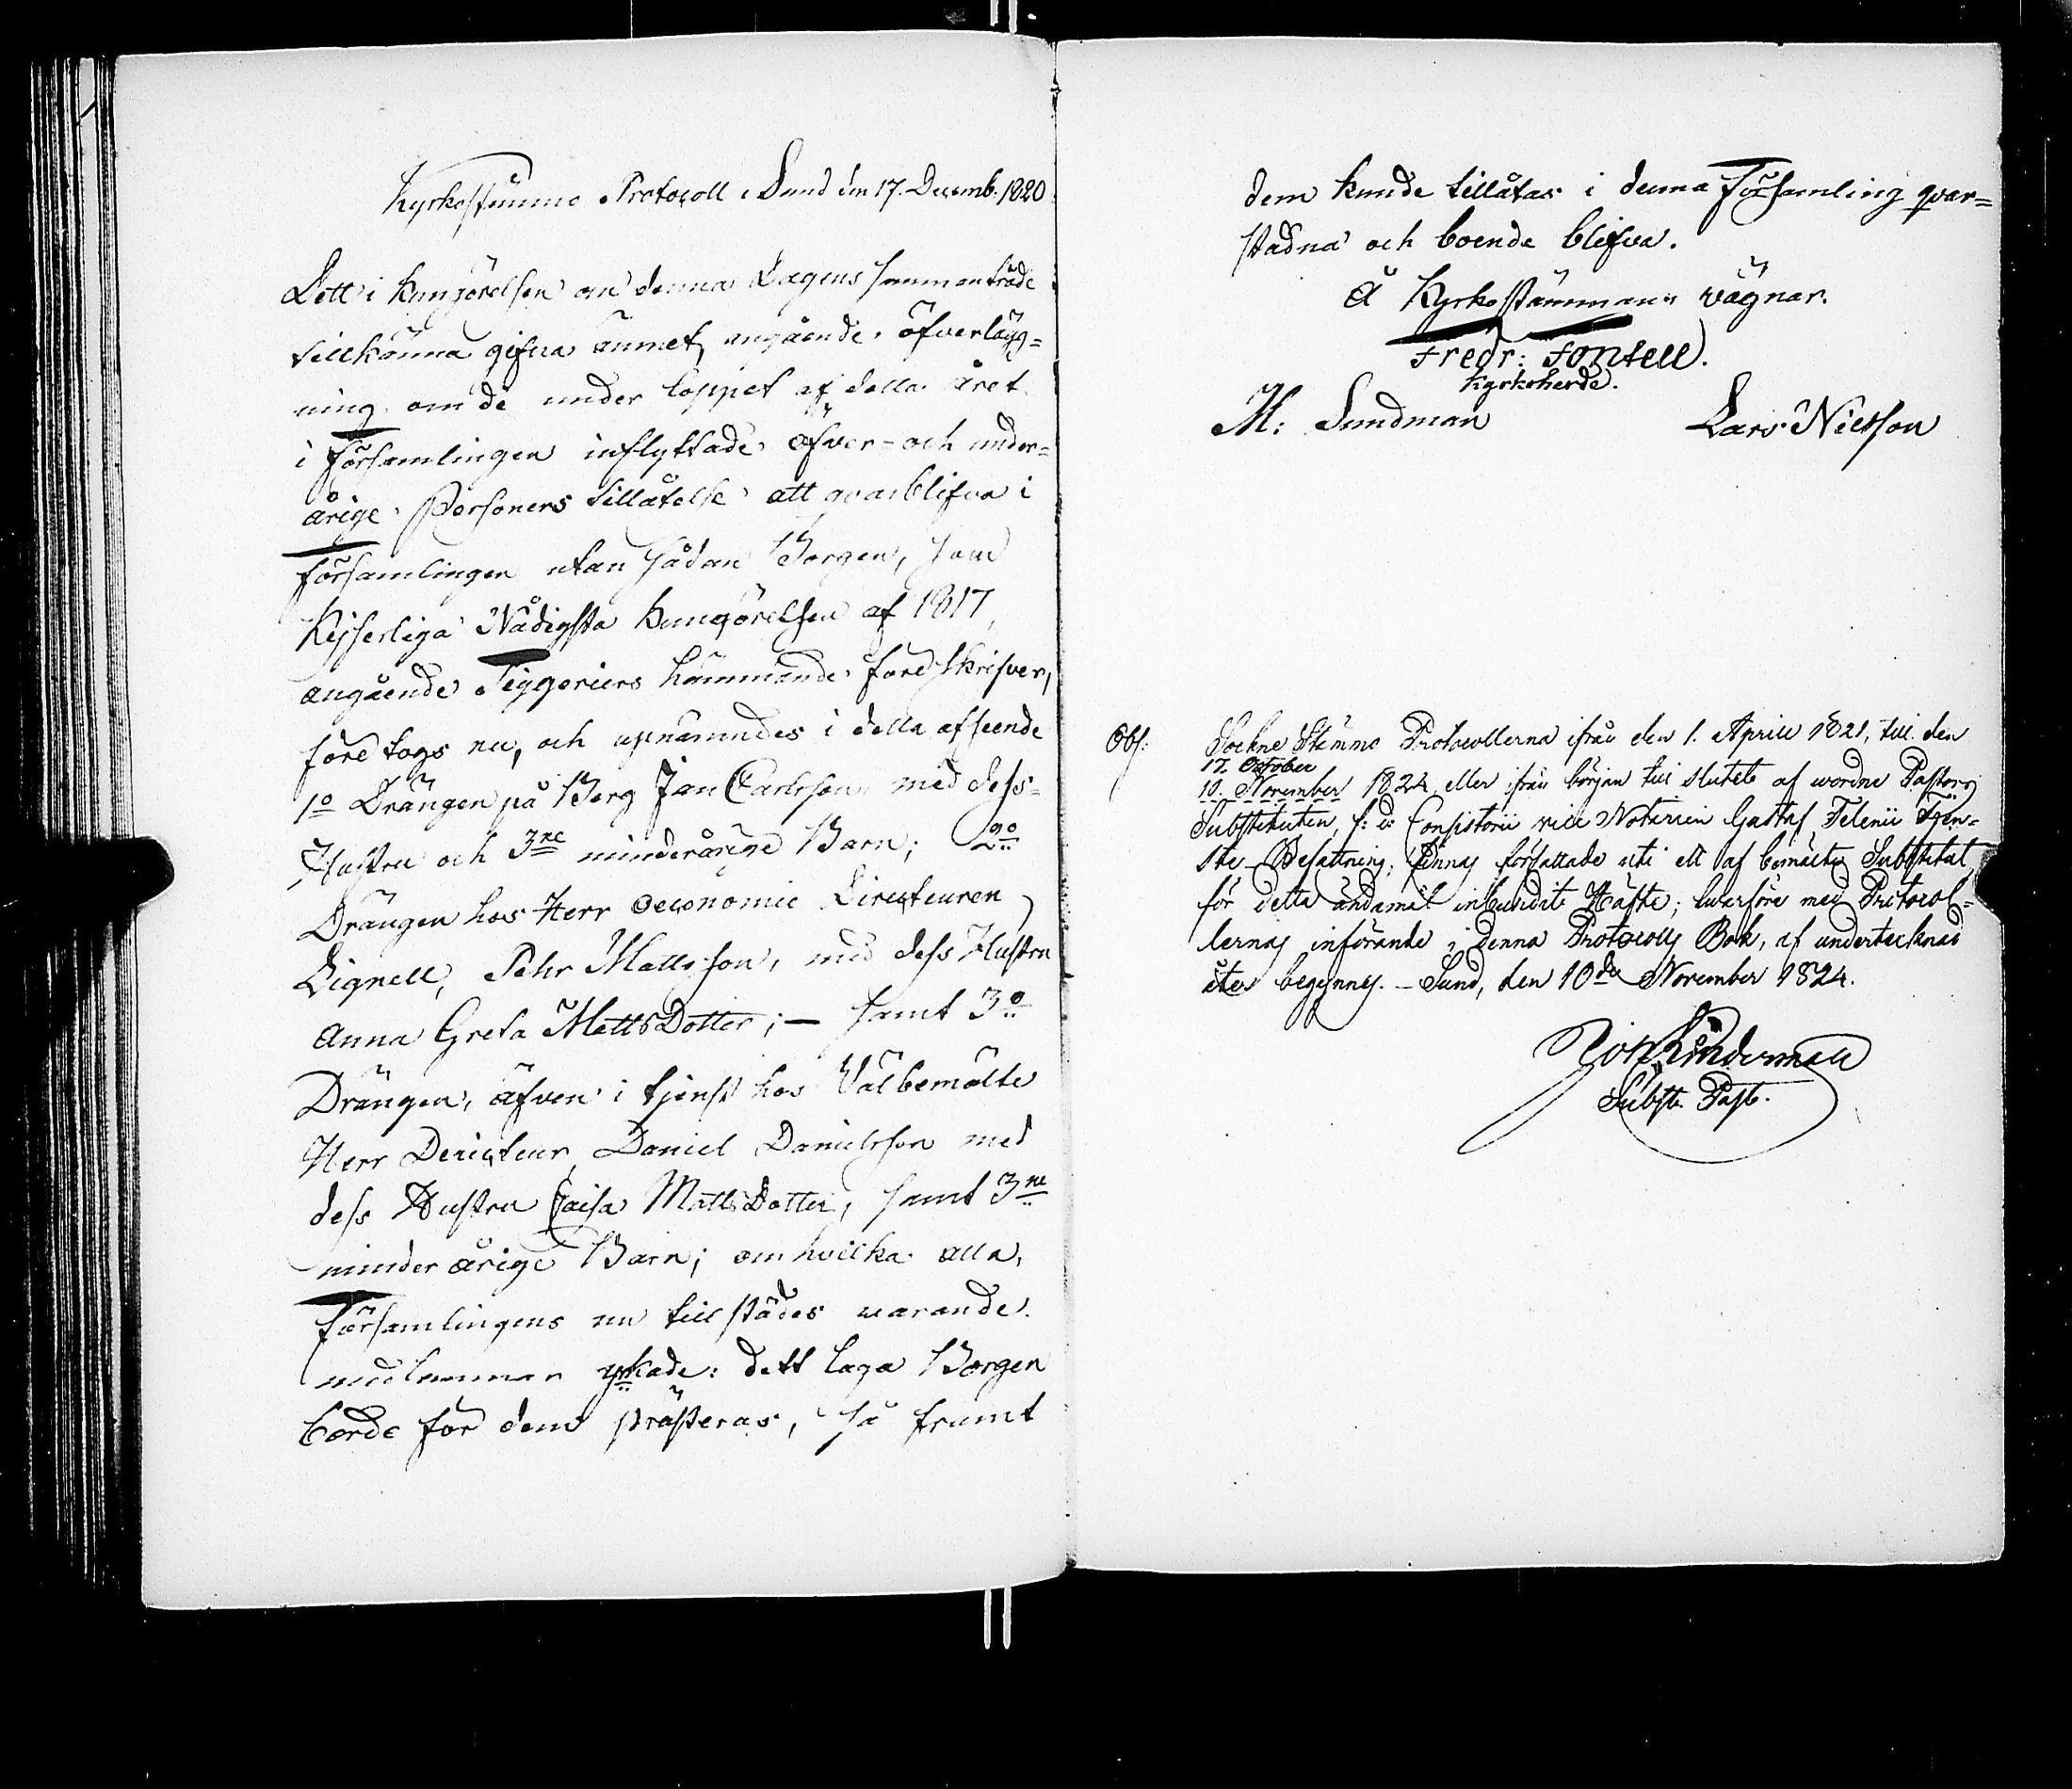 Kyrkostämmo Protocoll i Sund den 17. Decemb. 1820.
Dett i kungörelsen om denna Dagens sammanträde
tillkänna gifna ämnet, angående öfverlägg=
ning om de under loppet af detta året
i församlingen inflyttade öfver- och under=
årige Personers tillåtelse att qvarblifva i
församlingen utan sådan Borgen, som
Kejserliga Nådigsta kungörelsen af 1817,
angående Tiggeriers hämmande föreskrifver,
företogs nu, och upnämndes i detta afseende
1o Drängen på Borg Jan Carlsson med dess
Hustru och 3ne minderårige Barn; 2o
Drängen hos Herr Oeconomie Directeuren
Lignell, Pehr Mattsson, med dess Hustru
Anna Greta MattsDotter; — samt 3o
Drängen, äfven i tjenst hos Välbemälte
Herr Dericteur Daniel Danielsson med
dess Hustru Caisa MattsDotter, samt 3ne
minderårige Barn; om hvilka alla,
församlingens nu tillstädes varande
medlemmar yrkade: dett laga Borgen
borde för dem præsteras, så framt
dem kunde tillåtas i denna Församling qvar=
stadna och boende blifva.
Å Kyrkostämmans vägnar.
Fredr: Fontell.
Kyrkoherde.
M: Sundman Lars Nielsson
Obs: Sockne Stämmo Protocollerna ifrån den 1. Aprill 1821, till den
17. October
10. November 1824, eller ifrån början till slutet af wordne Pastors
Substituten, f: d: Consistorii vice Notarien Gustaf Telenii Tjen=
ste-Befattning, finnas författade uti ett af bemälte Substitut
för detta ändamål inbundit Häfte; hvarföre med Protocol=
lernas införande i denna Protocolls Bok, af undertecknad
åter begynnes. — Sund, den 10de November 1824.
Linderman
Subst. Past.